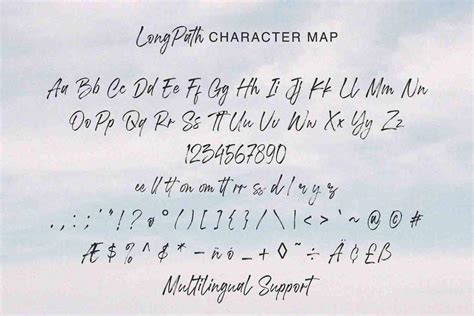 LongPath CHARACTER MAP
Aa Bb Cc Dd Ee Ff Gg Hh Ii Jj Kk Ll Mm Nn
Oo Pp Qq Rr Ss Tt Uu Vv Ww Xx Yy Zz
1234567890
ee ll tt on om tt rr ss d l r y z
. , : ; ' " ! ? ø ° ( ) [ ] { } / \ | < > ` ~ @ © #
Æ $ % ^ & * – ñ ó _ + ◊ ˜ ÷ Ä ¢ £ ß
Multilingual Support